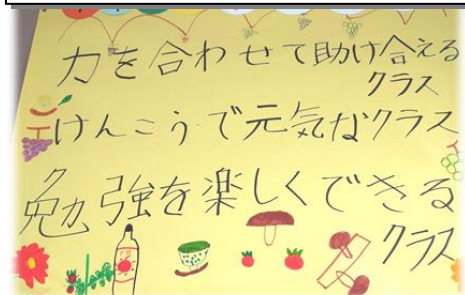 力を合わせて助け合える
クラス
けんこうで元気なクラス
勉強を楽しくできる
クラス